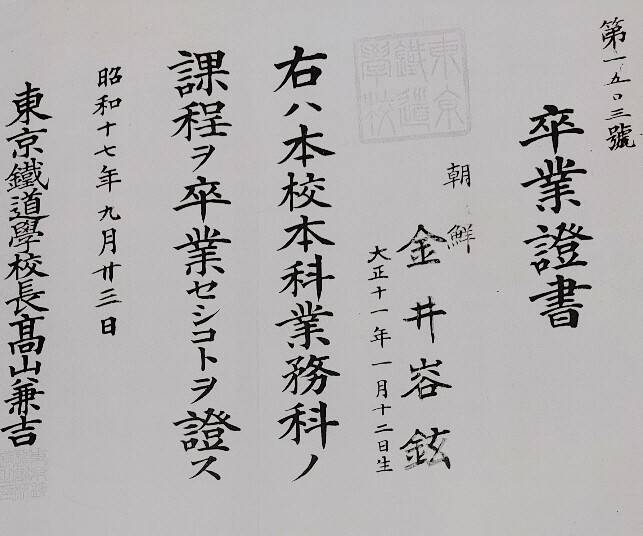 第一五〇三號
卒業證書
朝鮮
金井峈鉉
大正十一年一月十二日生
右ハ本校本科業務科ノ
課程ヲ卒業セシコトヲ證ス
昭和十七年九月廿三日
東京鐵道學校長髙山兼吉
東京
鐵道
學校